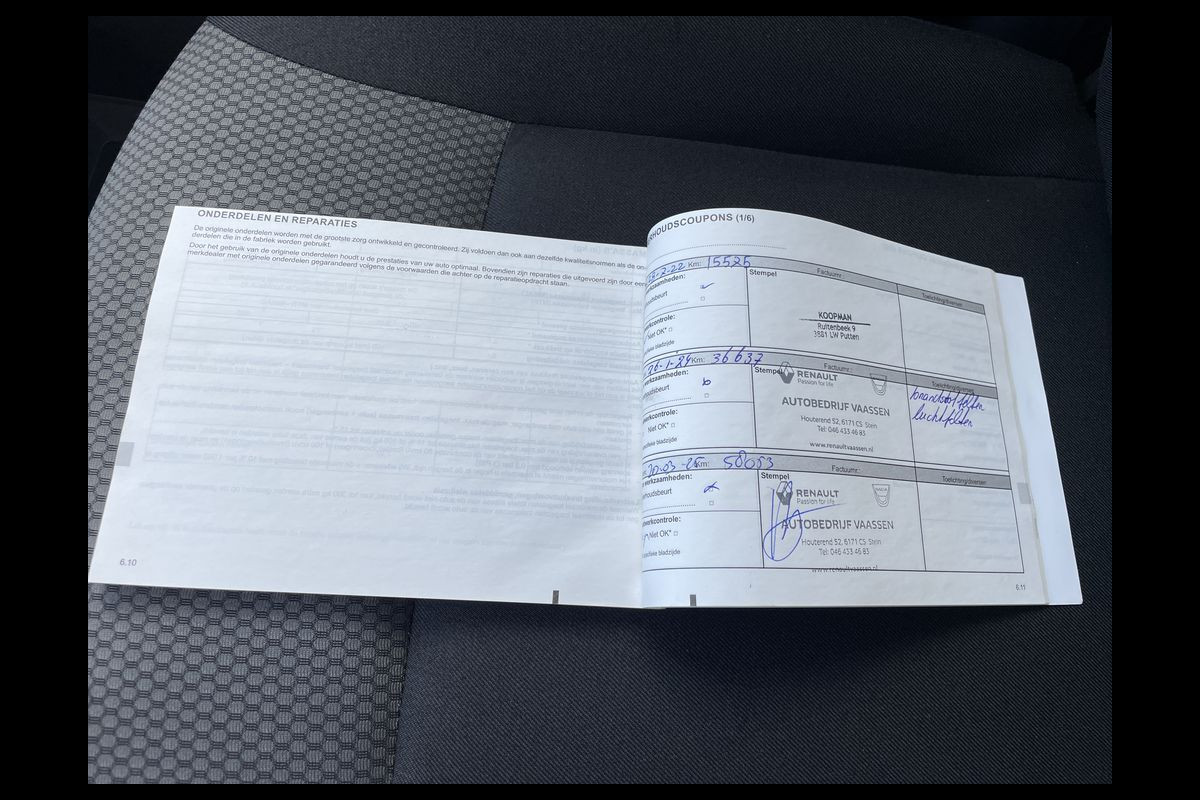 ONDERDELEN EN REPARATIES
De originele onderdelen worden met de grootste zorg ontwikkeld en gecontroleerd. Zij voldoen dan ook aan dezelfde kwaliteitsnormen als de on
derdelen die in de fabriek worden gebruikt.
Door het gebruik van de originele onderdelen houdt u de prestaties van uw auto optimaal. Bovendien zijn reparaties die uitgevoerd zijn door een
merkdealer met originele onderdelen gegarandeerd volgens de voorwaarden die achter op de reparatieopdracht staan.
6.10
RHOUDSCOUPONS (1/6)
-2-22 Km: 15525
Factuurnr.:
Toelichting/diversen
erkzaamheden:
Stempel
oudsbeurt
KOOPMAN
Ruitenbeek 9
3881 LW Putten
werkcontrole:
Niet OK*
ecifieke bladzijde
26-1-24 Km: 36637
Factuurnr.:
Toelichting/diversen
werkzaamheden:
Stempel
RENAULT
Passion for life
erhoudsbeurt
AUTOBEDRIJF VAASSEN
Houterend 52, 6171 CS Stein
Tel: 046 433 46 83
www.renaultvaassen.nl
brandstoffilter
luchtfilter
werkcontrole:
Niet OK*
pecifieke bladzijde
20-03-25 Km: 58053
Factuurnr.:
Toelichting/diversen
e werkzaamheden:
Stempel
RENAULT
Passion for life
DACIA
erhoudsbeurt
AUTOBEDRIJF VAASSEN
Houterend 52, 6171 CS Stein
Tel: 046 433 46 83
www.renaultvaassen.nl
stwerkcontrole:
Niet OK*
specifieke bladzijde
6.11